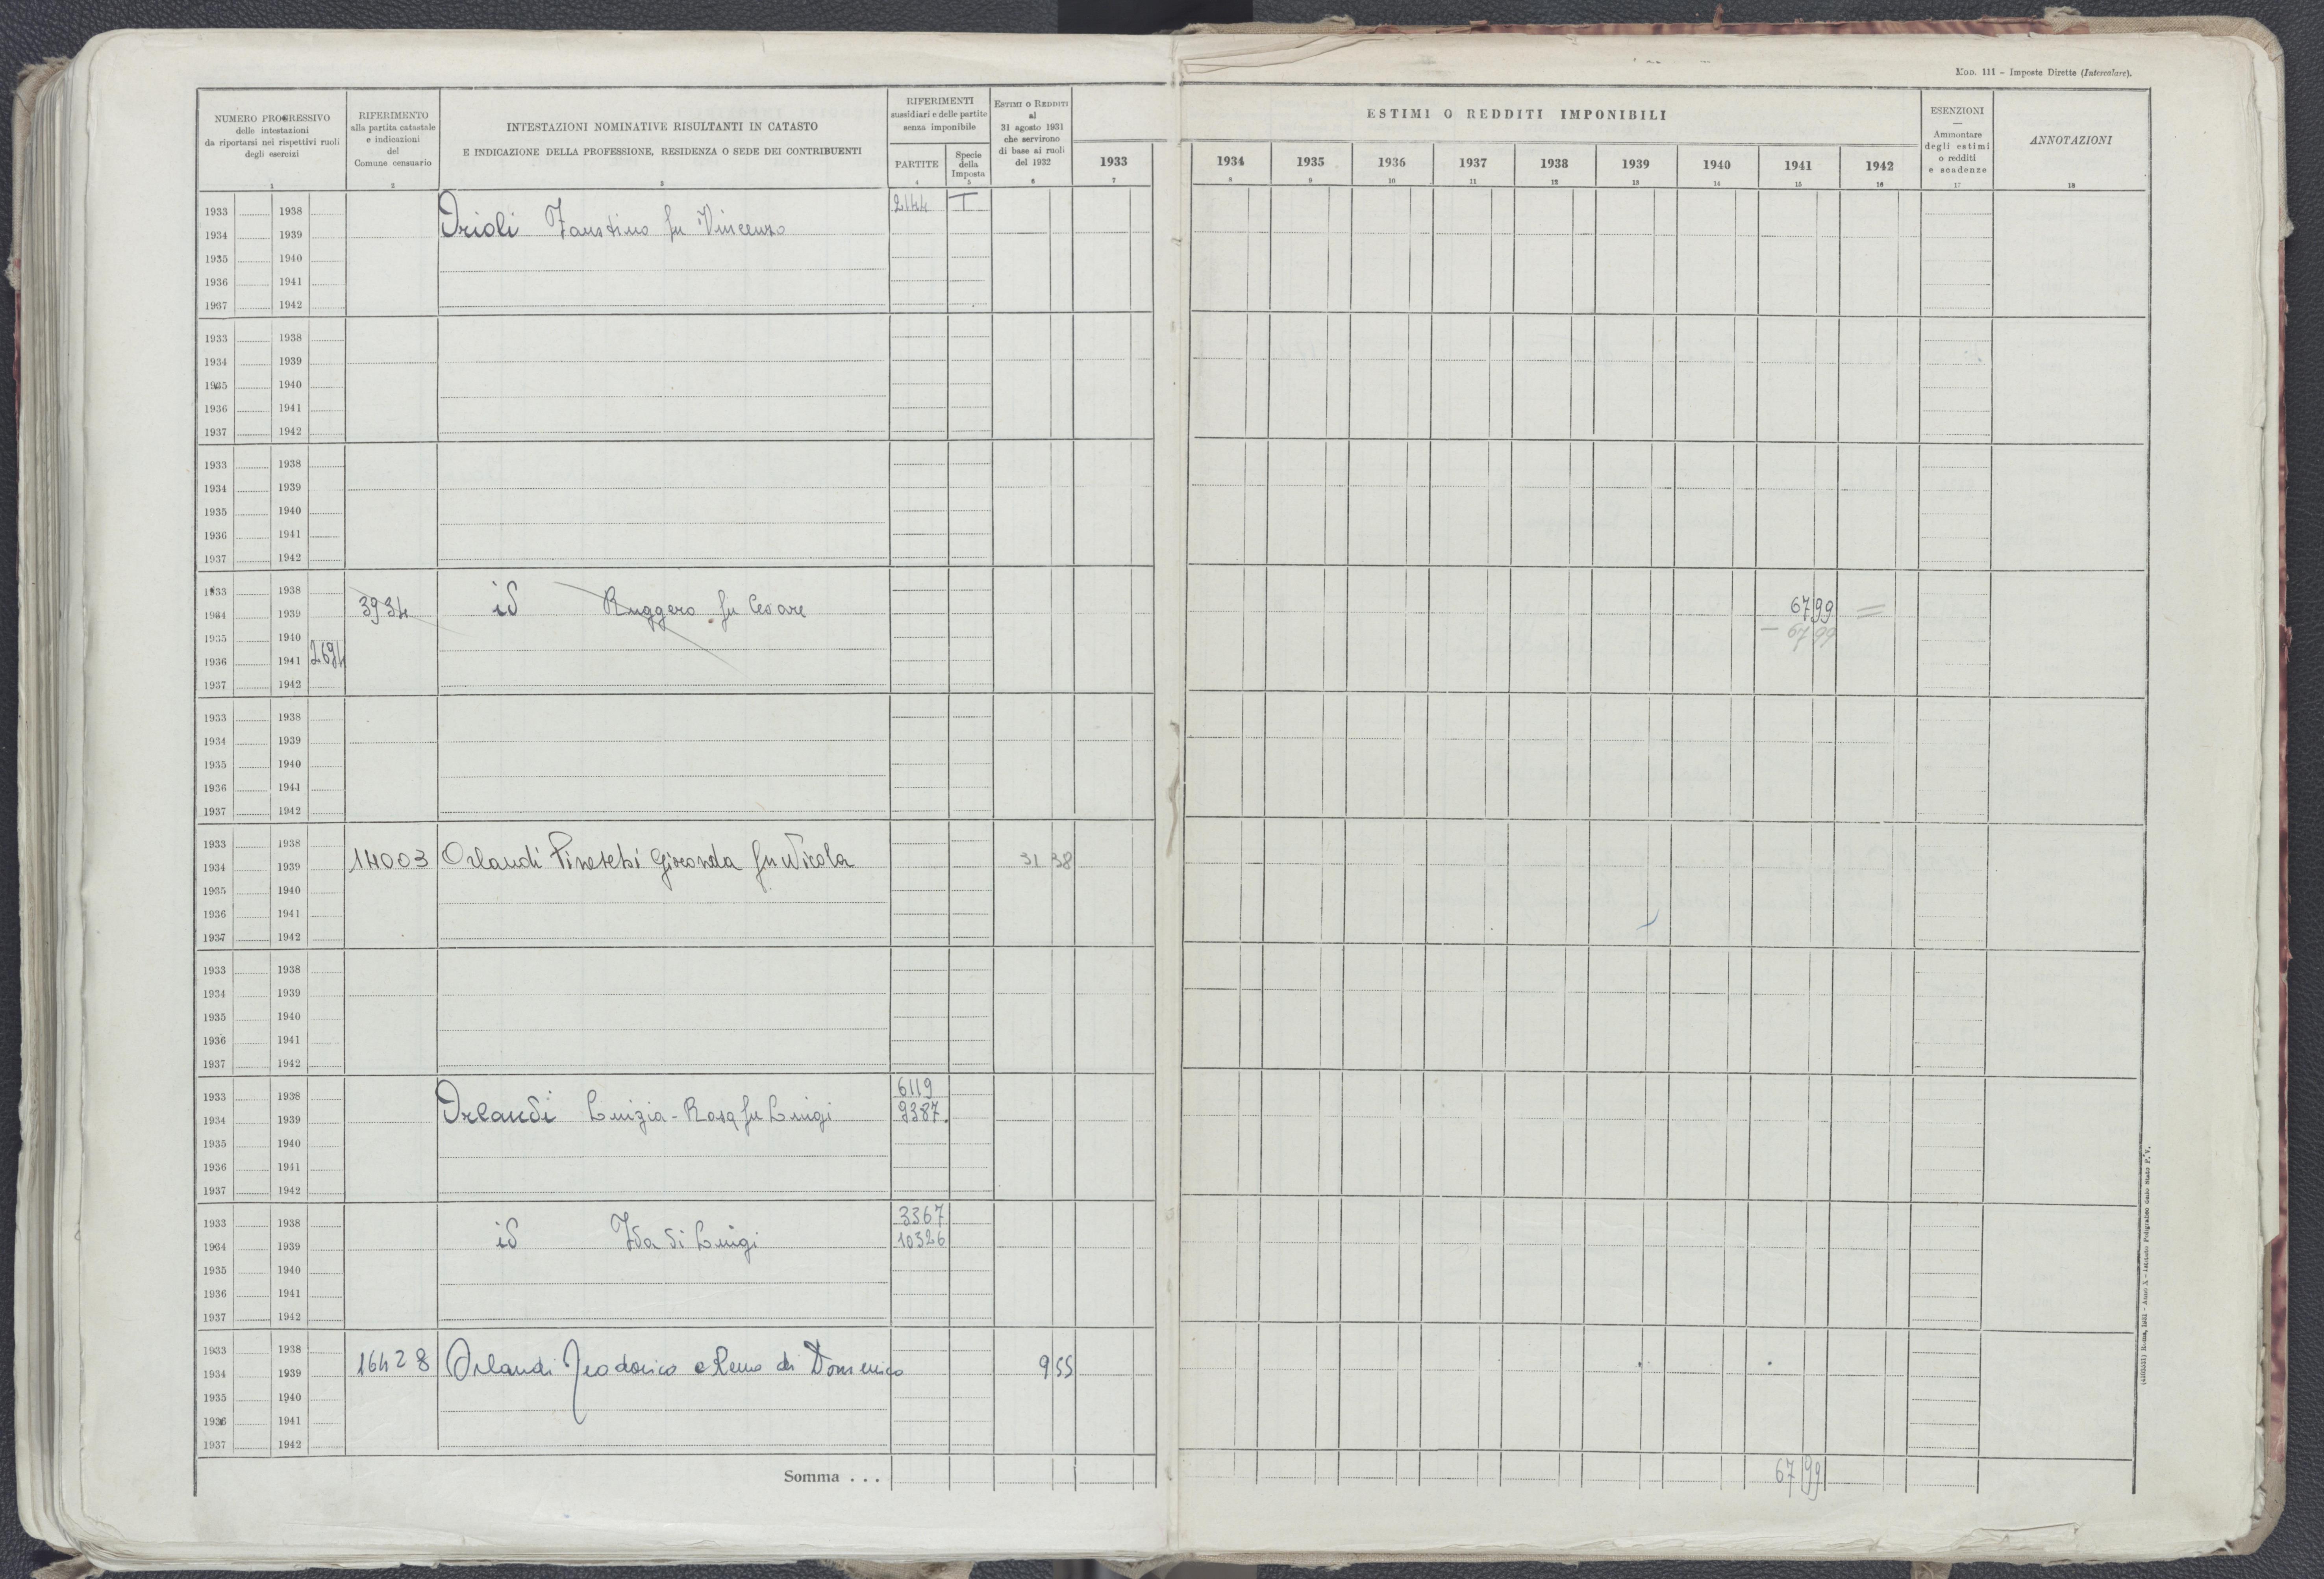 Mod. 111 - Imposte Dirette (Intercalare).
NUMERO PROGRESSIVO
delle intestazioni
da riportarsi nei rispettivi ruoli
degli esercizi
1
RIFERIMENTO
alla partita catastale
e indicazioni
del
Comune censuario
2
INTESTAZIONI NOMINATIVE RISULTANTI IN CATASTO
E INDICAZIONE DELLA PROFESSIONE, RESIDENZA O SEDE DEI CONTRIBUENTI
3
RIFERIMENTI
sussidiari e delle partite
senza imponibile
PARTITE
4
Specie
della
Imposta
5
ESTIMI O REDDITI
al
31 agosto 1931
che servirono
di base ai ruoli
del 1932
6
ESTIMI O REDDITI IMPONIBILI
1933 1934 1935 1936 1937 1938 1939 1940 1941 1942
7 8 9 10 11 12 13 14 15 16
ESENZIONI
Ammontare
degli estimi
o redditi
e scadenze
17
ANNOTAZIONI
18
1933 1938 2144 T
1934 1939 Orioli Faustino fu Vincenzo
1935 1940
1936 1941
1937 1942
1933 1938
1934 1939
1935 1940
1936 1941
1937 1942
1933 1938
1934 1939
1935 1940
1936 1941
1937 1942
1933 1938
1934 1939 3934 id Ruggero fu Cesare 67 99 =
1935 1940 - 67 99
1936 1941 2694
1937 1942
1933 1938
1934 1939
1935 1940
1936 1941
1937 1942
1933 1938
1934 1939 14003 Orlandi Pineschi Gioconda fu Nicola 31 38
1935 1940
1936 1941
1937 1942
1933 1938
1934 1939
1935 1940
1936 1941
1937 1942
1933 1938 6119
1934 1939 Orlandi Luizia-Rosa fu Luigi 9387
1935 1940
1936 1941
1937 1942
1933 1938 3367
1934 1939 id Ida di Luigi 10326
1935 1940
1936 1941
1937 1942
1933 1938
1934 1939 16428 Orlandi Teodorico e Remo di Domenico 9 55
1935 1940
1936 1941
1937 1942
Somma . . . 67 99